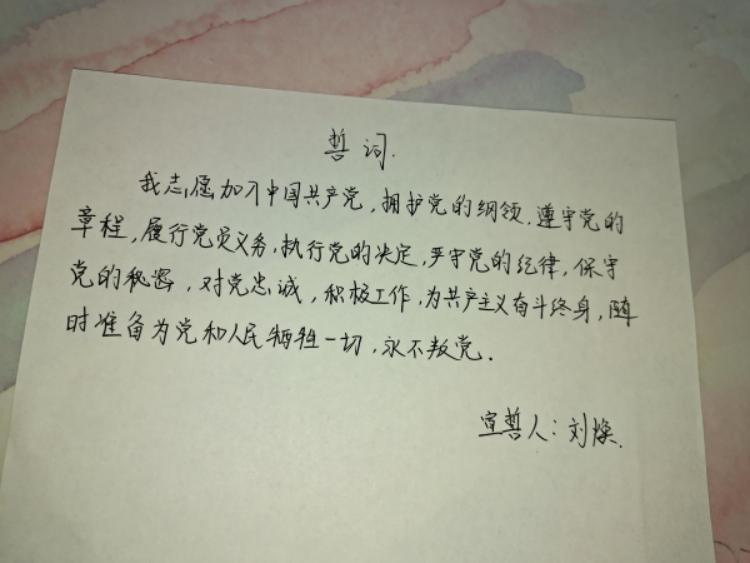 誓词.
我志愿加入中国共产党,拥护党的纲领,遵守党的
章程,履行党员义务,执行党的决定,严守党的纪律,保守
党的秘密,对党忠诚,积极工作,为共产主义奋斗终身,随
时准备为党和人民牺牲一切,永不叛党.
宣誓人:刘焕.